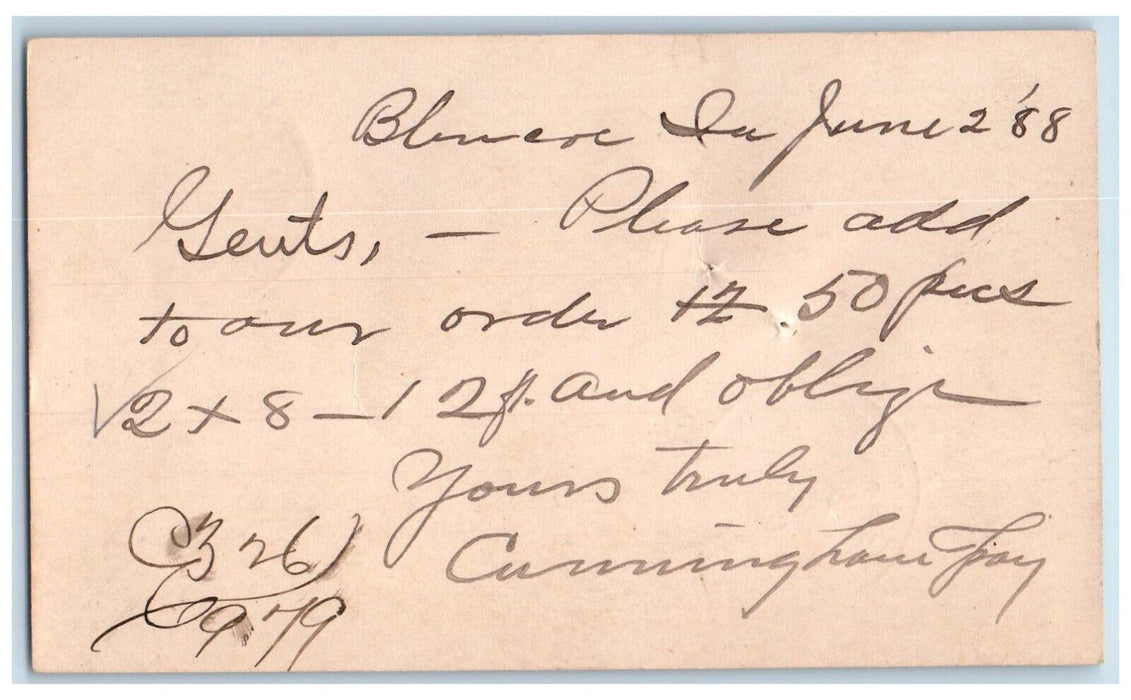 Blencoe Ia June 2 '88
Gents, — Please add
to our order 12 50 pces
√ 2 x 8 — 12 ft. and oblige
Yours truly
Cunningham